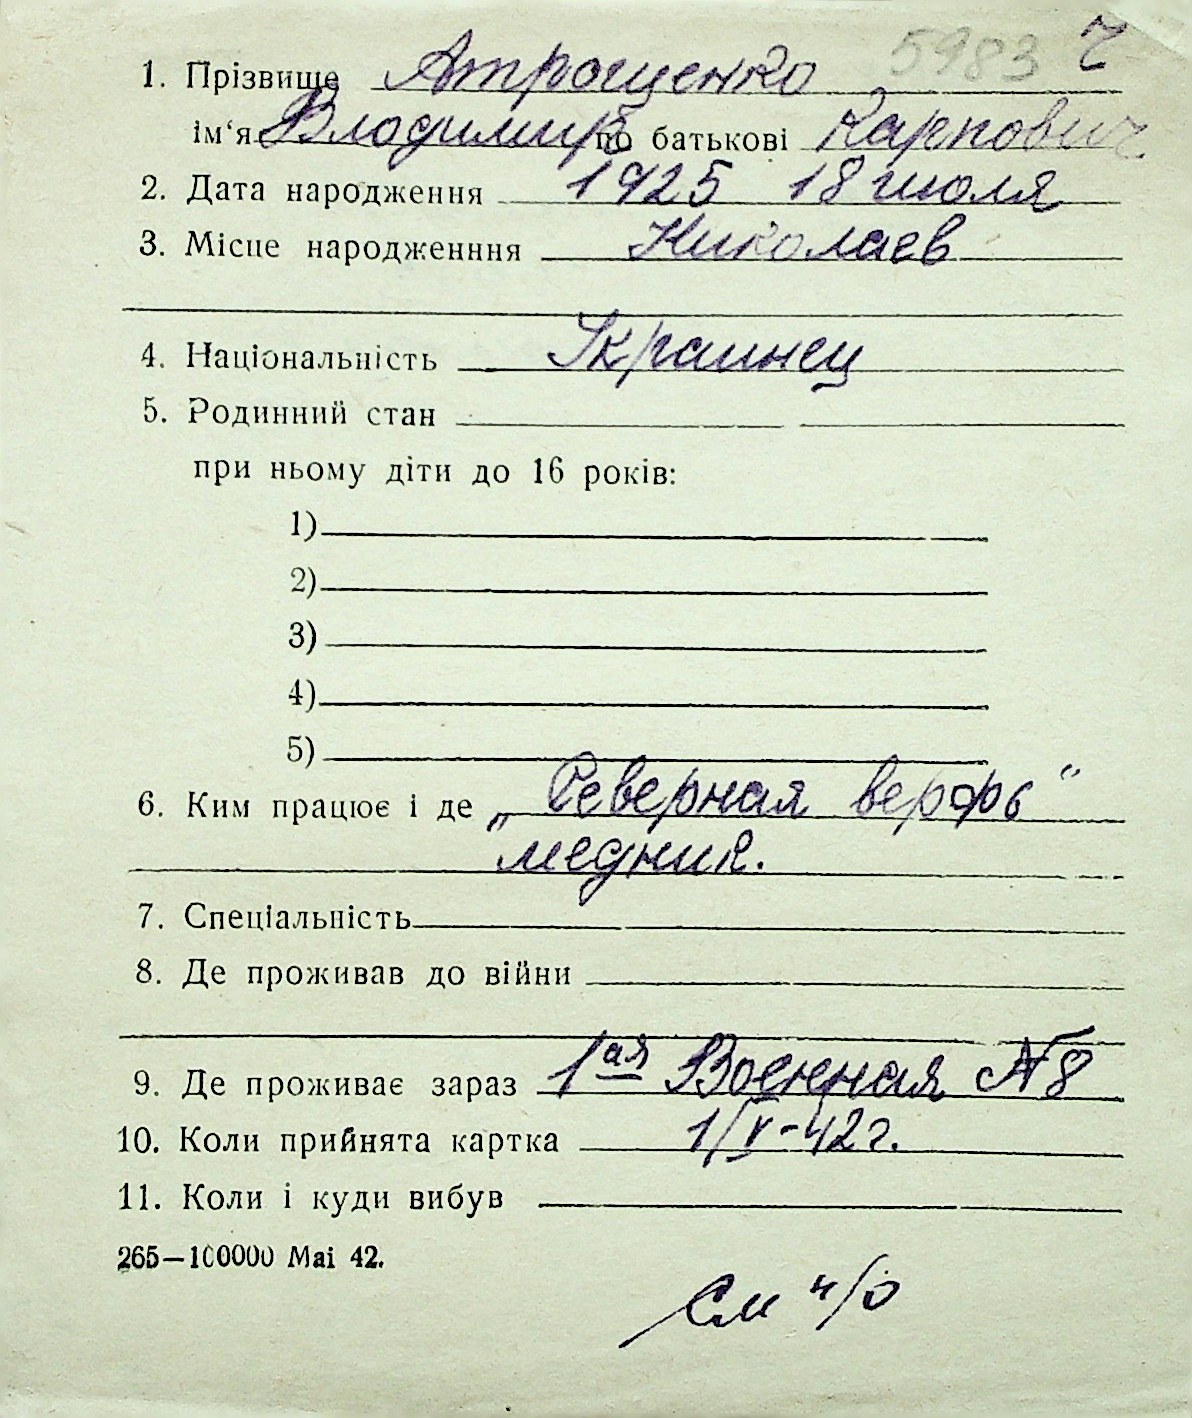 5983 ч
1. Прізвище Атрощенко
ім‘я Владимир по батькові Карпович
2. Дата народження 1925 18 июля
3. Місце народженння Николаев
4. Національність Украинец
5. Родинний стан
при ньому діти до 16 років:
1)
2)
3)
4)
5)
6. Ким працює і де „Северная верфь“
медник.
7. Спеціальність
8. Де проживав до війни
9. Де проживає зараз 1ая Военная №8
10. Коли прийнята картка 1/V-42г.
11. Коли і куди вибув
265—100000 Mai 42.
См н/о